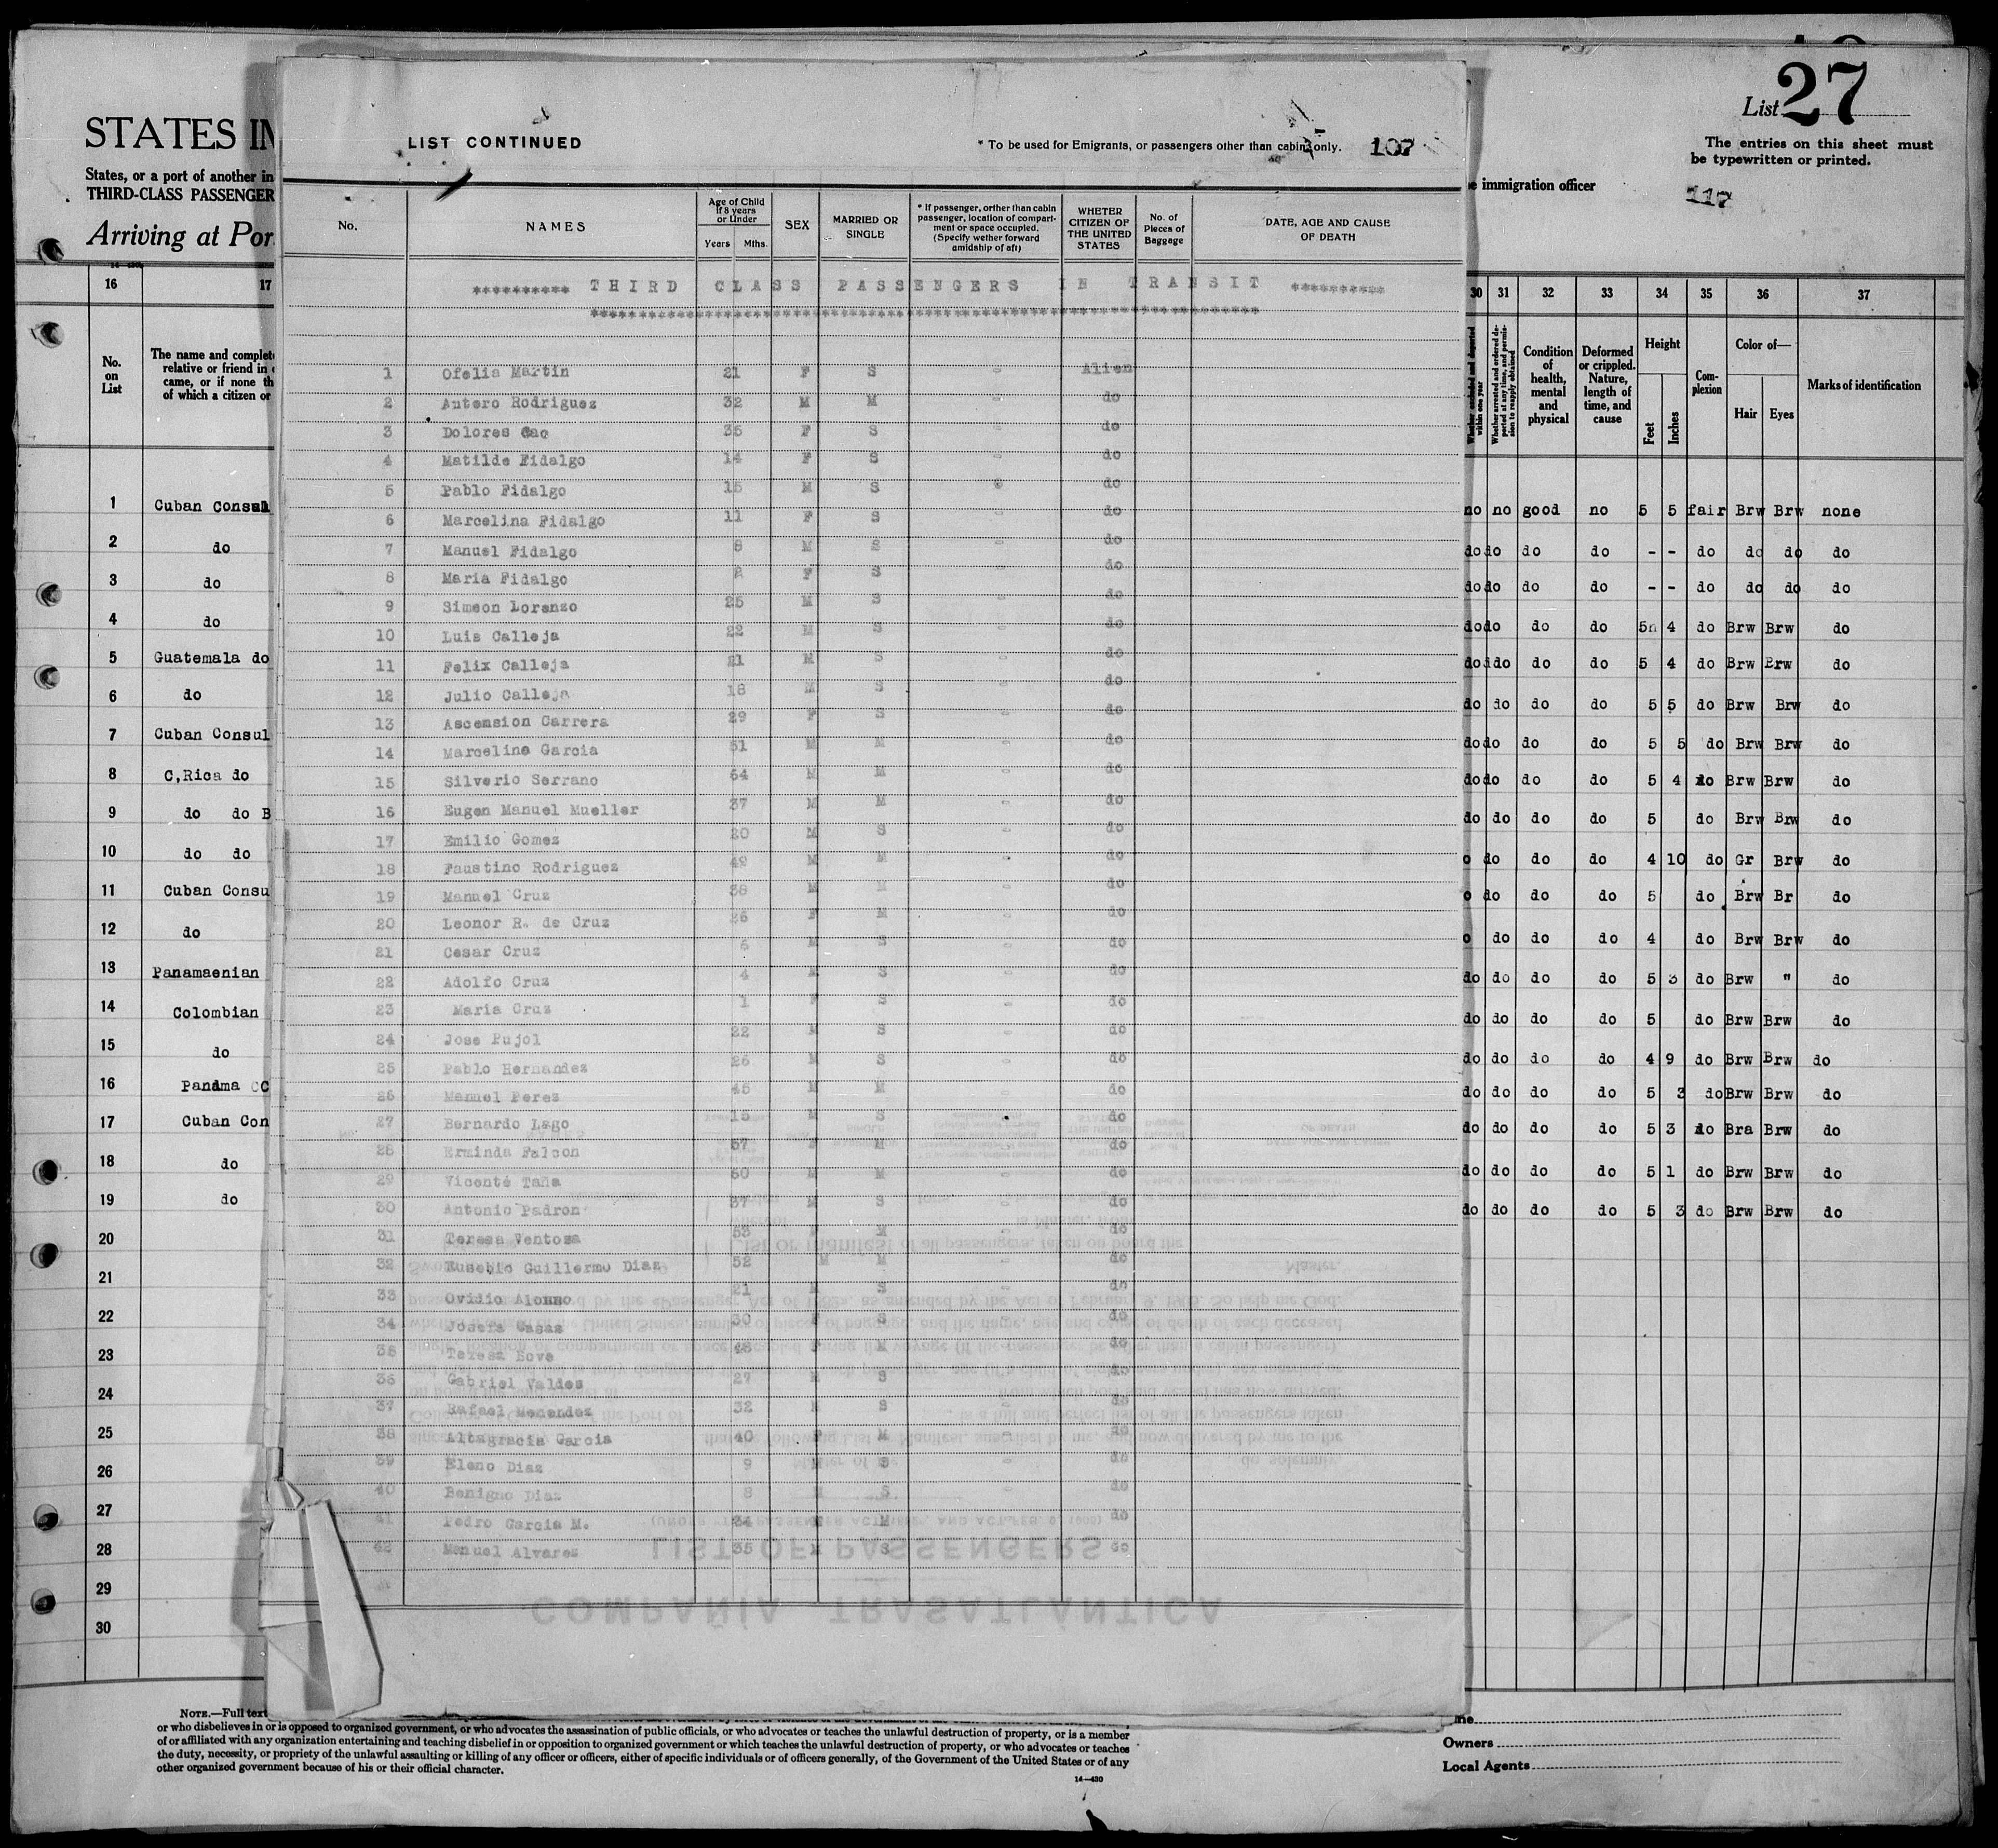 List 27
The entries on this sheet must
be typewritten or printed.
immigration officer
117
STATES IN
States, or a port of another in
THIRD-CLASS PASSENGER
Arriving at Por
LIST CONTINUED
* To be used for Emigrants, or passengers other than cabin only. 107
No.
NAMES
Age of Child if 8 years or Under
Years Mths.
SEX
MARRIED OR SINGLE
* If passenger, orther than cabin passenger, location of compartiment or space occupied. (Specify wether forward amidship of aft)
WHETER CITIZEN OF THE UNITED STATES
No. of Pieces of Baggage
DATE, AGE AND CAUSE OF DEATH
********** THIRD CLASS PASSENGERS IN TRANSIT **********
1 Ofelia Martin 21 F S - Alien
2 Antero Rodriguez 32 M M - do
3 Dolores Cao 35 F S - do
4 Matilde Fidalgo 14 F S - do
5 Pablo Fidalgo 15 M S do
6 Marcelina Fidalgo 11 F S - do
7 Manuel Fidalgo 8 M S - do
8 Maria Fidalgo 2 F S - do
9 Simeon Lorenzo 25 M S - do
10 Luis Calleja 22 M S - do
11 Felix Calleja 21 M S - do
12 Julio Calleja 18 M S - do
13 Ascension Carrera 29 F S - do
14 Marcelino Garcia 51 M M - do
15 Silverio Serrano 54 M M - do
16 Eugen Manuel Mueller 37 M M - do
17 Emilio Gomez 20 M S - do
18 Faustino Rodriguez 49 M M - do
19 Manuel Cruz 38 M M - do
20 Leonor R. de Cruz 26 F M - do
21 Cesar Cruz 6 M S - do
22 Adolfo Cruz 4 M S - do
23 Maria Cruz 1 F S - do
24 Jose Pujol 22 M S - do
25 Pablo Hernandez 26 M S - do
26 Manuel Perez 45 M M - do
27 Bernardo Lago 15 M S do
28 Erminda Falcon 57 F M - do
29 Vicente Taña 50 M M - do
30 Antonio Padron 37 M S - do
31 Teresa Ventosa 53 M do
32 Eusebio Guillermo Diaz 52 M M - do
33 Ovidio Alonso 21 M S - do
34 Josefa Casas 30 S - do
35 Teresa Bova 48 M - do
36 Gabriel Valdes 27 M S - do
37 Rafael Menendez 32 M S - do
38 Altagracia Garcia 40 F M - do
39 Eleno Diaz 9 M S - do
40 Benigno Diaz 8 M S - do
41 Pedro Garcia M. 34 M M do
42 Manuel Alvarez 35 M S do
COMPAÑÍA TRASATLÁNTICA
LIST OF PASSENGERS
16 17
No. on List
The name and complet
relative or friend in
came, or if none th
of which a citizen or
1 Cuban Consul
2 do
3 do
4 do
5 Guatemala do
6 do
7 Cuban Consul
8 C,Rica do
9 do do B
10 do do
11 Cuban Consu
12 do
13 Panamaenian
14 Colombian
15 do
16 Panama CC
17 Cuban Con
18 do
19 do
20
21
22
23
24
25
26
27
28
29
30
30 31 32 33 34 35 36 37
Condition of health, mental and physical
Deformed or crippled. Nature, length of time, and cause
Height
Feet Inches
Complexion
Color of—
Hair Eyes
Marks of identification
no no good no 5 5 fair Brw Brw none
do do do do - - do do do do
do do do do - - do do do do
do do do do 5 4 do Brw Brw do
do do do do 5 4 do Brw Brw do
do do do do 5 5 do Brw Brw do
do do do do 5 5 do Brw Brw do
do do do do 5 4 do Brw Brw do
do do do do 5 do Brw Brw do
do do do 4 10 do Gr Brw do
do do do 5 do Brw Br do
do do do 4 do Brw Brw do
do do do do 5 3 do Brw " do
do do do do 5 do Brw Brw do
do do do do 4 9 do Brw Brw do
do do do do 5 3 do Brw Brw do
do do do do 5 3 do Bra Brw do
do do do do 5 1 do Brw Brw do
do do do do 5 3 do Brw Brw do
NOTE.—Full text
or who disbelieves in or is opposed to organized government, or who advocates the assassination of public officials, or who advocates or teaches the unlawful destruction of property, or is a member
of or affiliated with any organization entertaining and teaching disbelief in or opposition to organized government or which teaches the unlawful destruction of property, or who advocates or teaches
the duty, necessity, or propriety of the unlawful assaulting or killing of any officer or officers, either of specific individuals or of officers generally, of the Government of the United States or of any
other organized government because of his or their official character.
14—430
Owners
Local Agents